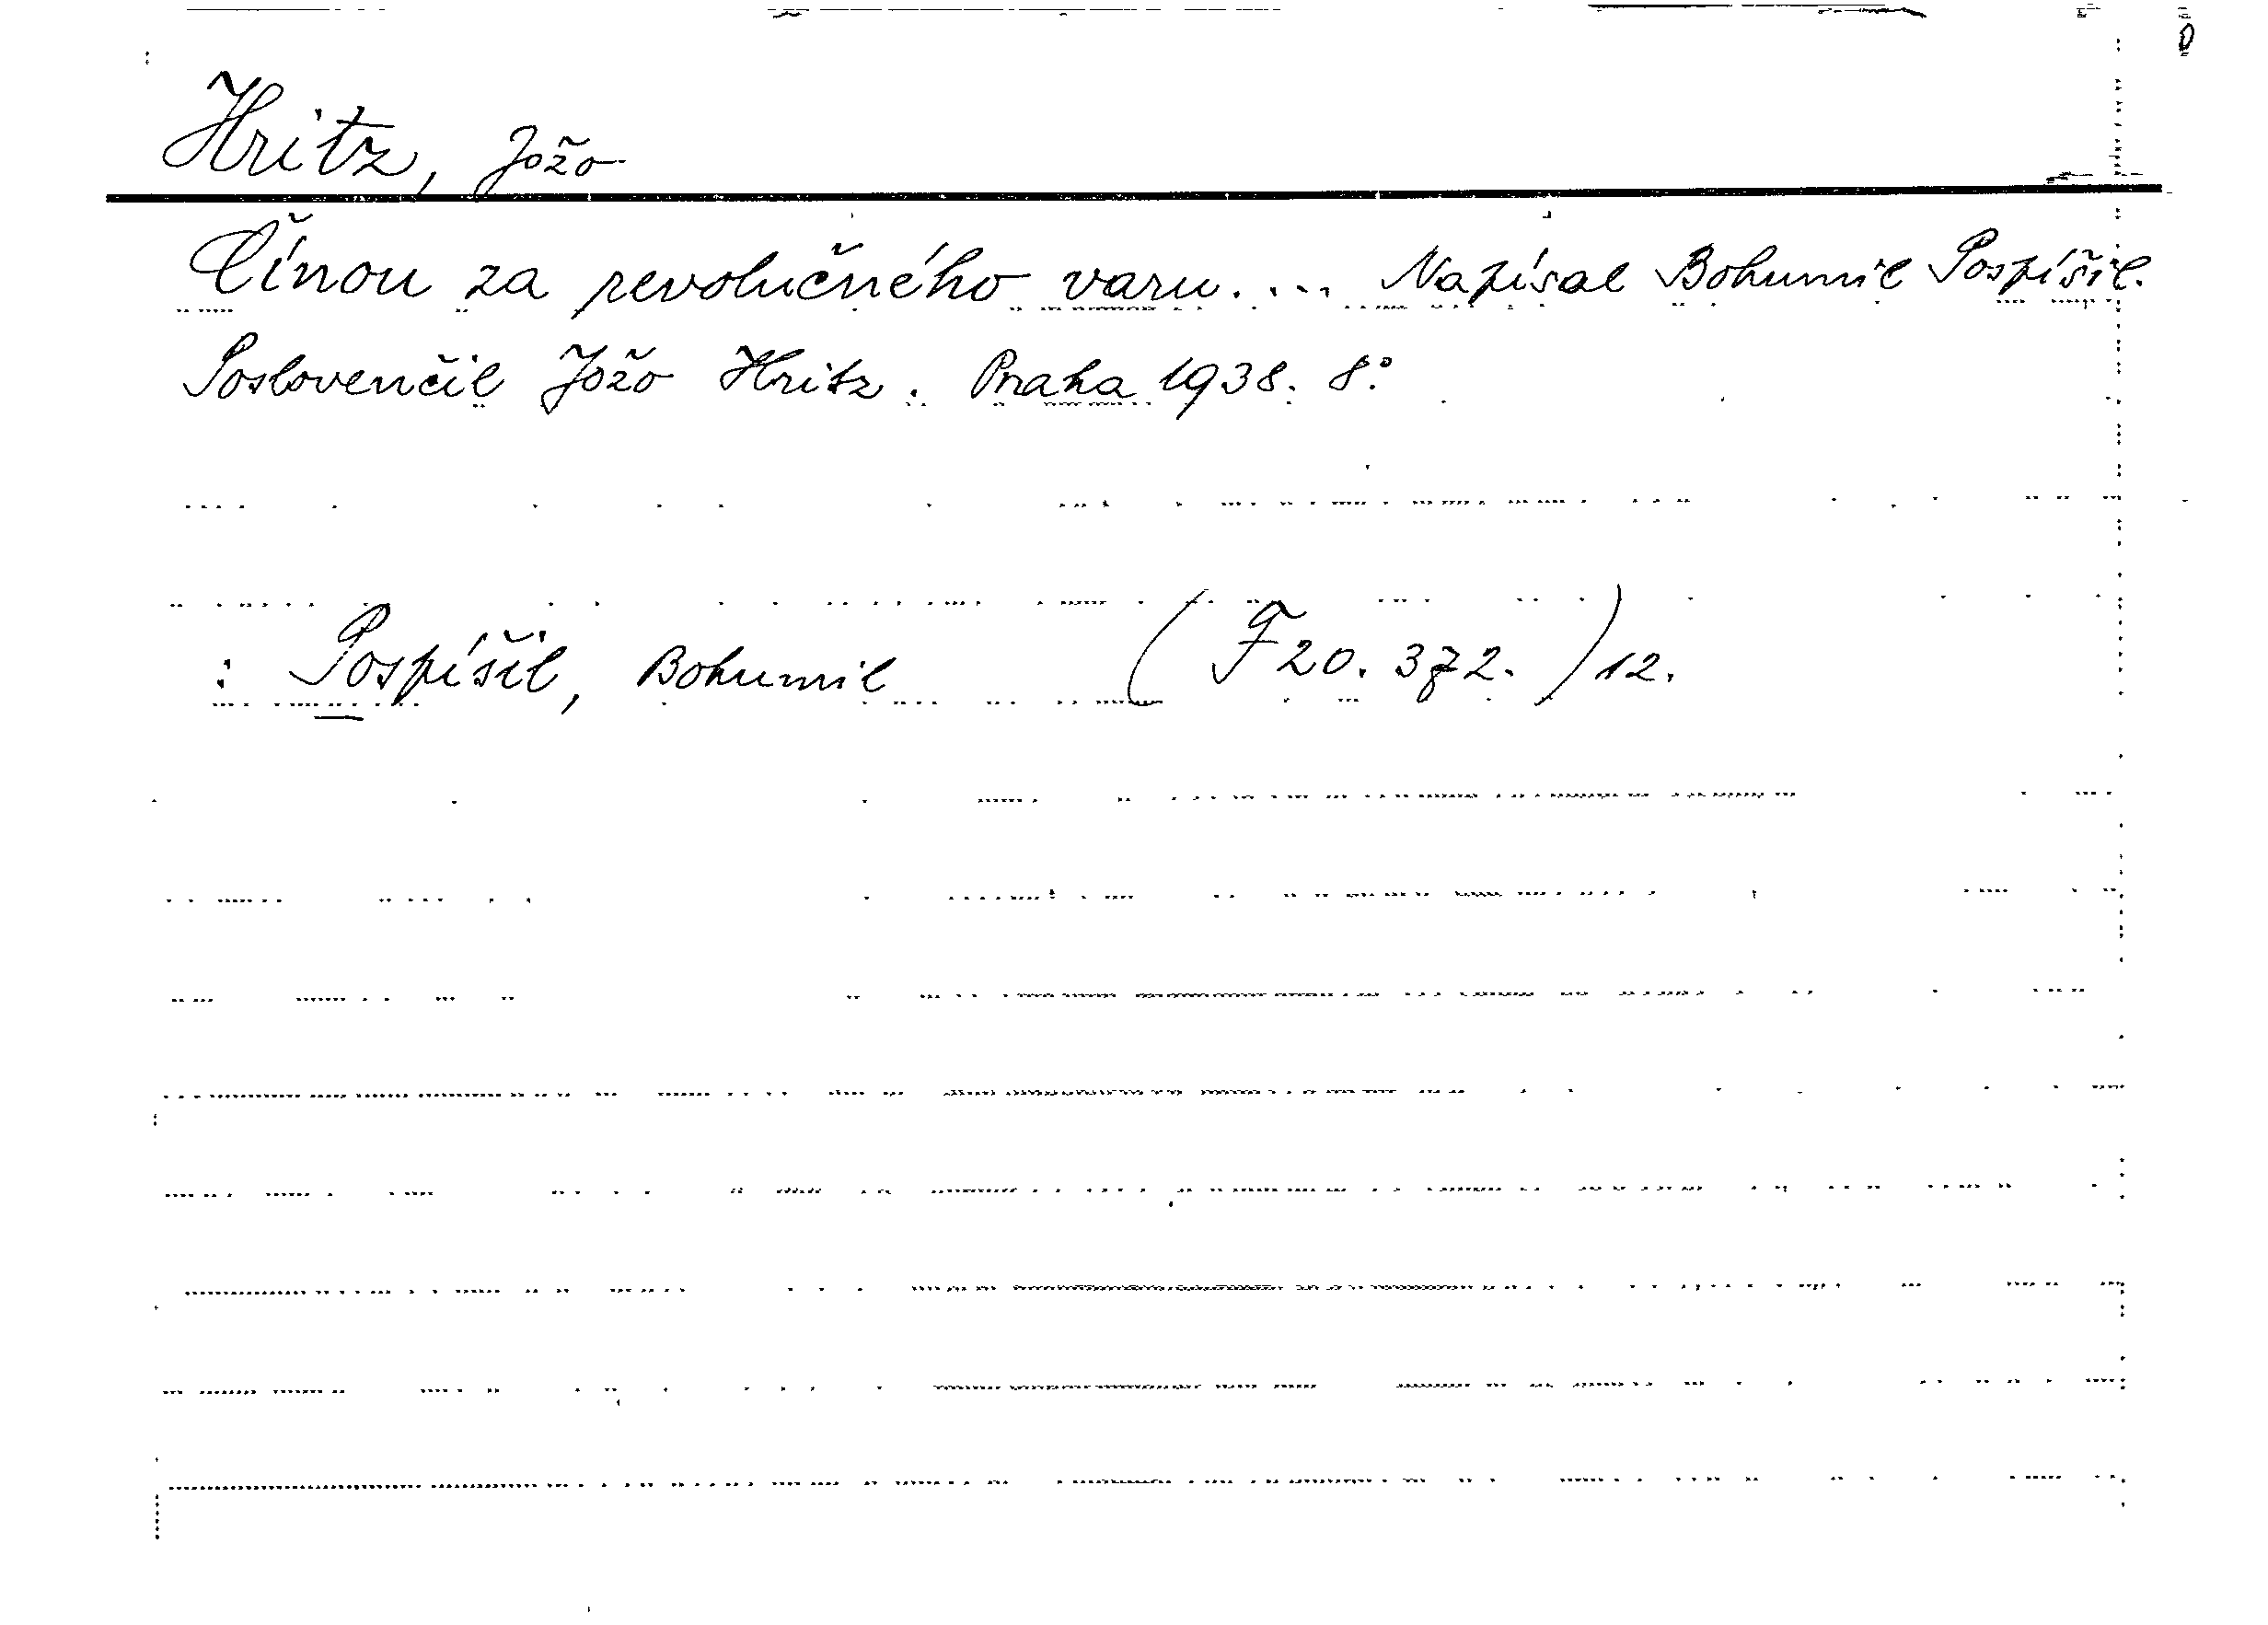 Hritz, Jožo
Čínou za revolučného varu. ... Napísal Bohumil Pospíšil.
Poslovenčil Jožo Hritz. Praha 1938. 8°
: Pospíšil, Bohumil (F 20. 372.) 12.